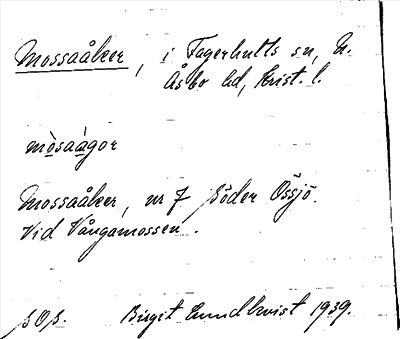 Mossaåker, i Fagerhults sn, N.
Åsbo hd, Krist. l.
mòsaágor
Mossaåker, nr 7 Söder Össjö.
Vid Vångamossen.
s. o. s. Birget Lundkvist 1939.